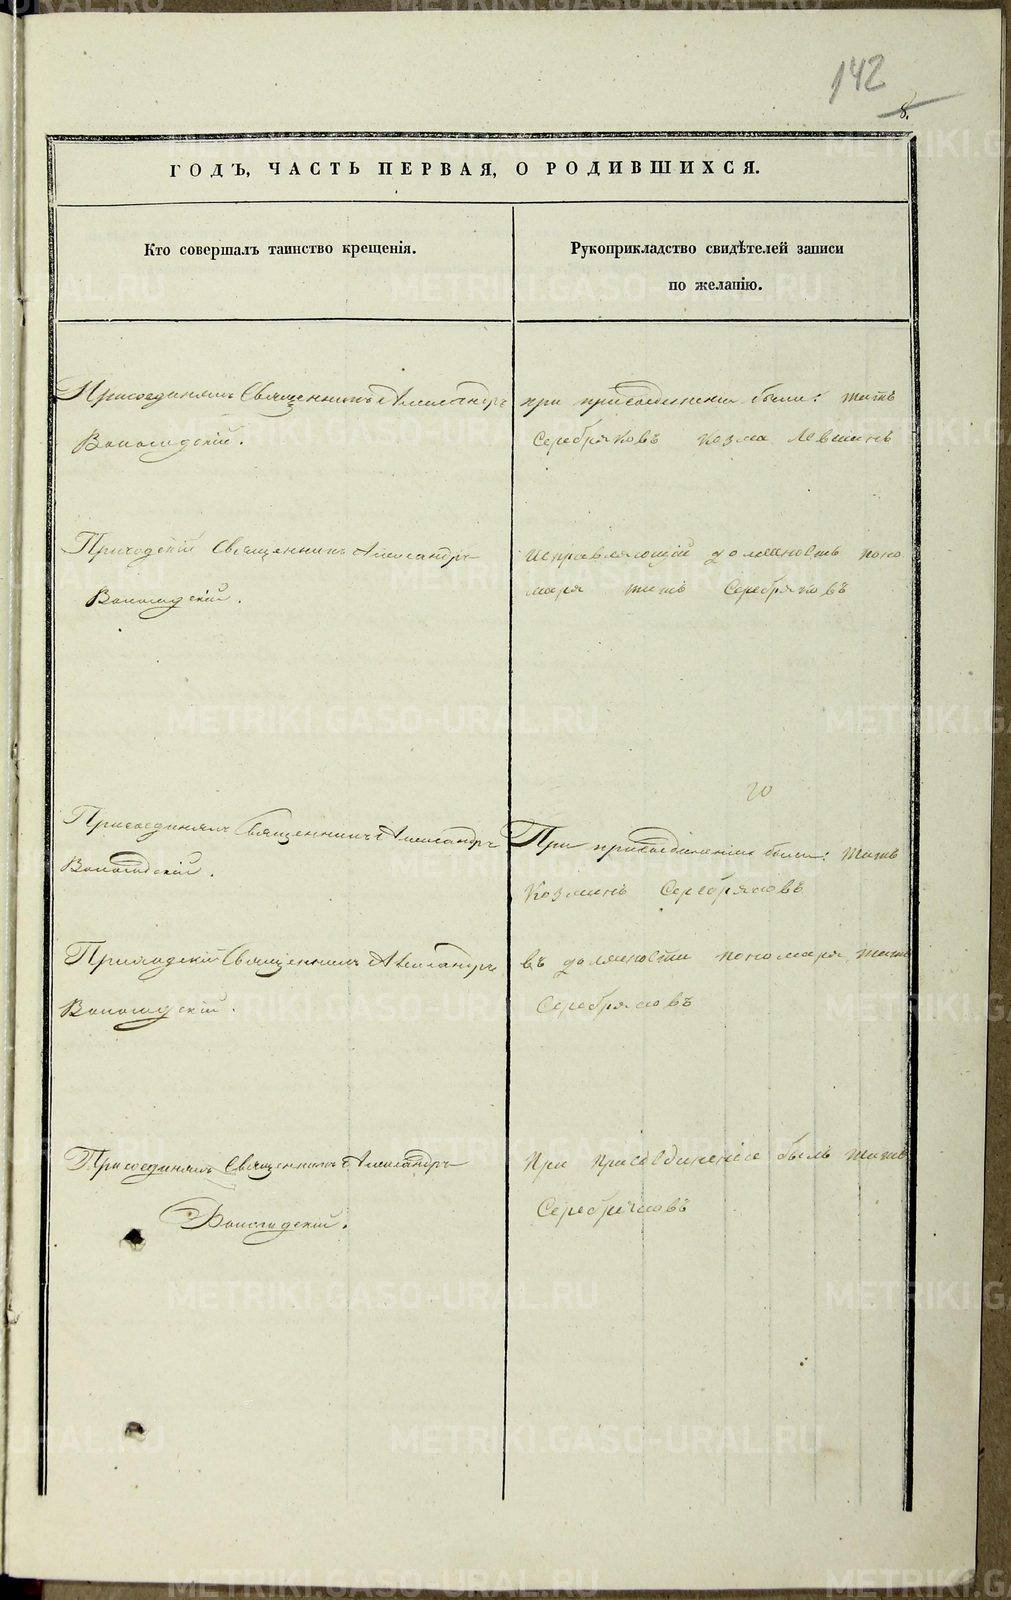 142
8.
ГОДЪ, ЧАСТЬ ПЕРВАЯ, О РОДИВШИХСЯ.
Кто совершалъ таинство крещенія.
Рукоприкладство свидѣтелей записи
по желанію.
Присоединялъ Священникъ Александръ
Вологодскій.
при присоединении были: титъ
Серебряковъ козма Левшинъ
Приходскій Священникъ Александръ
Вологодскій.
исправляющій должность поно
маря титъ Серебряковъ
Присоединялъ Священникъ Александръ
Вологодскій.
При присоединении были: титъ
Козминъ Серебряковъ
Приходскій Священникъ Александръ
Вологодскій.
въ должности пономаря титъ
Серебряковъ
Присоединялъ Священникъ Александръ
Вологодскій.
При присоединеніе былъ титъ
Серебряковъ
METRIKI.GASO-URAL.RU